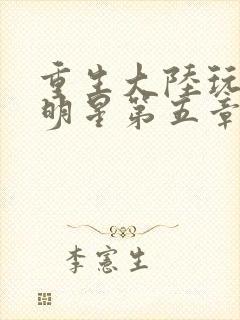 重生大陸玩
明星第五章
李憲生